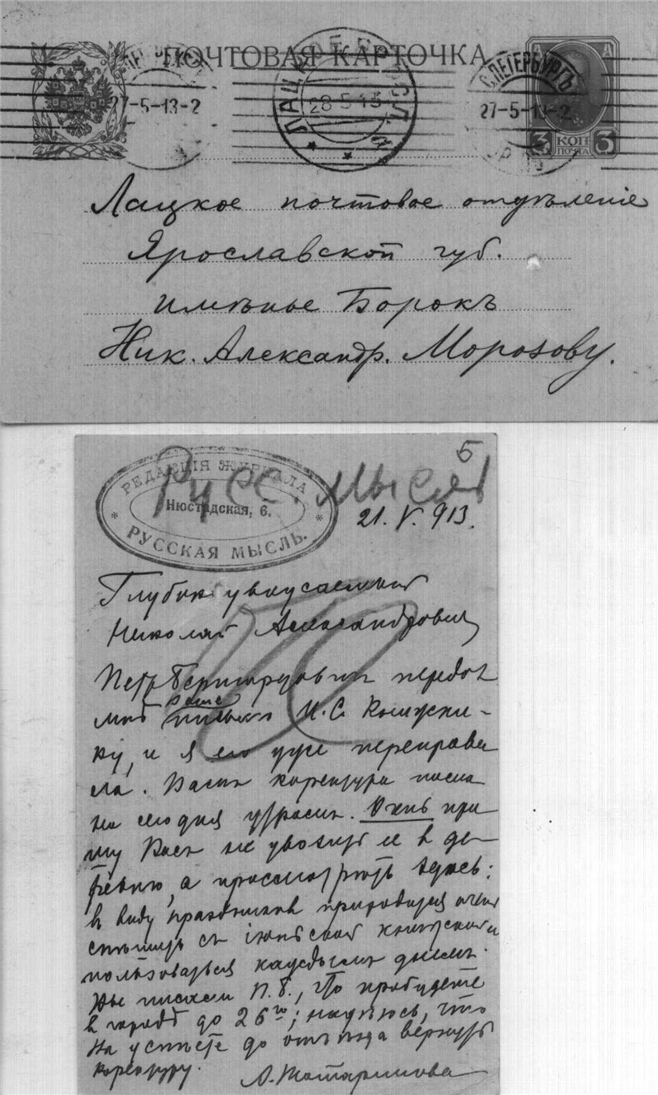 ПОЧТОВАЯ КАРТОЧКА
С.ПЕТЕРБУРГЪ
27-5-13-2
28 5 13
27-5-13-2
3 КОП 3
ПОЧТА
Лацкое почтовое отдѣленіе
Ярославской губ.
имѣнье Борокъ
Ник. Александр. Морозову.
5
РЕДАКЦІЯ ЖУРНАЛА
Нюстадская, 6.
РУССКАЯ МЫСЛЬ.
Русс. мысль
21. V. 913.
Глубокоуважаемый
Николай Александрович
Петр Бернгардович передал
мнѣ Ваше письмо
ку, и я его уже переправи
ла. Вам корректура послана
на сегодня утром. Очень про
шу Вас не увозить ее в де
ревню, а просмотрѣть здѣсь:
в виду праздников приходится очень
спѣшить съ іюньской книжкой и
пользоваться каждым днем.
Вы писали П.Б., что пробудете
в городѣ до 26го; надѣюсь, что
успѣете до отъѣзда вернуть
корректуру.